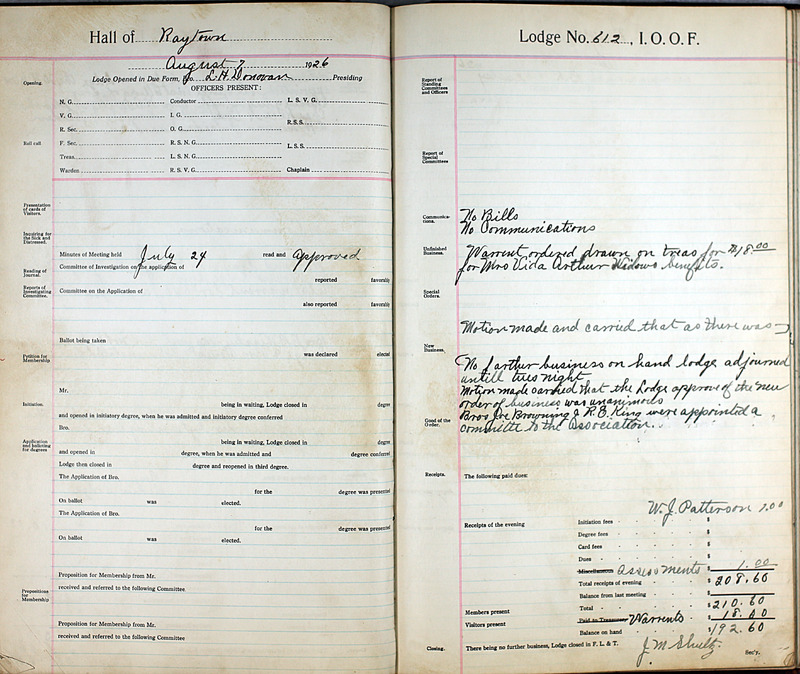 Hall of Raytown
August 7 1926
Lodge Opened in Due Form, L.H. Donovan Presiding
OFFICERS PRESENT:
Opening.
N. G. Conductor L. S. V. G.
V. G. I. G.
R. S. S.
R. Sec. O. G.
Roll call
F. Sec. R. S. N. G.
L. S. S.
Treas. L. S. N. G.
Warden R. S. V. G. Chaplain
Presentation of cards of Visitors.
Inquiring for the Sick and Distressed.
Minutes of Meeting held July 24 read and approved
Reading of Journal.
Committee of Investigation on the application of
reported favorably
Reports of Investigating Committee.
Committee on the Application of
also reported favorably
Ballot being taken
was declared elected
Petition for Membership
Mr.
Initiation.
being in waiting, Lodge closed in degree
and opened in initiatory degree, when he was admitted and initiatory degree conferred
Bro.
Application and balloting for degrees
being in waiting, Lodge closed in degree
and opened in degree, when he was admitted and degree conferred
Lodge then closed in degree and reopened in third degree.
The Application of Bro.
for the degree was presented
On ballot was elected.
The Application of Bro.
for the degree was presented
On ballot was elected.
Proposition for Membership from Mr.
received and referred to the following Committee
Propositions for Membership
Proposition for Membership from Mr.
received and referred to the following Committee
Lodge No. 612, I. O. O. F.
Report of Standing Committees and Officers
Report of Special Committees
Communications.
No Bills
No Communications
Unfinished Business.
Warrent ordered drawn on treas for $18.00
for Mrs Vida Arthur Widows benefits.
Special Orders.
Motion made and carried that as there was
New Business.
No farther business on hand lodge adjourned
untill tues night
Motion made carried that the Lodge approve of the new
order of business was unanimous
Bros Joe Browning & R.E. King were appointed a
Good of the Order.
committe to the association.
Receipts. The following paid dues:
W. J. Patterson 1.00
Receipts of the evening Initiation fees $
Degree fees $
Card fees $
Dues $
Miscellaneous assessments $ 1.00
Total receipts of evening $ 208.60
Balance from last meeting $
Members present Total $ 210.60
Visitors present Paid to Treasurer Warrents $ 18.00
Balance on hand $ 192.60
Closing. There being no further business, Lodge closed in F. L. & T. J M Shultz Sec'y.